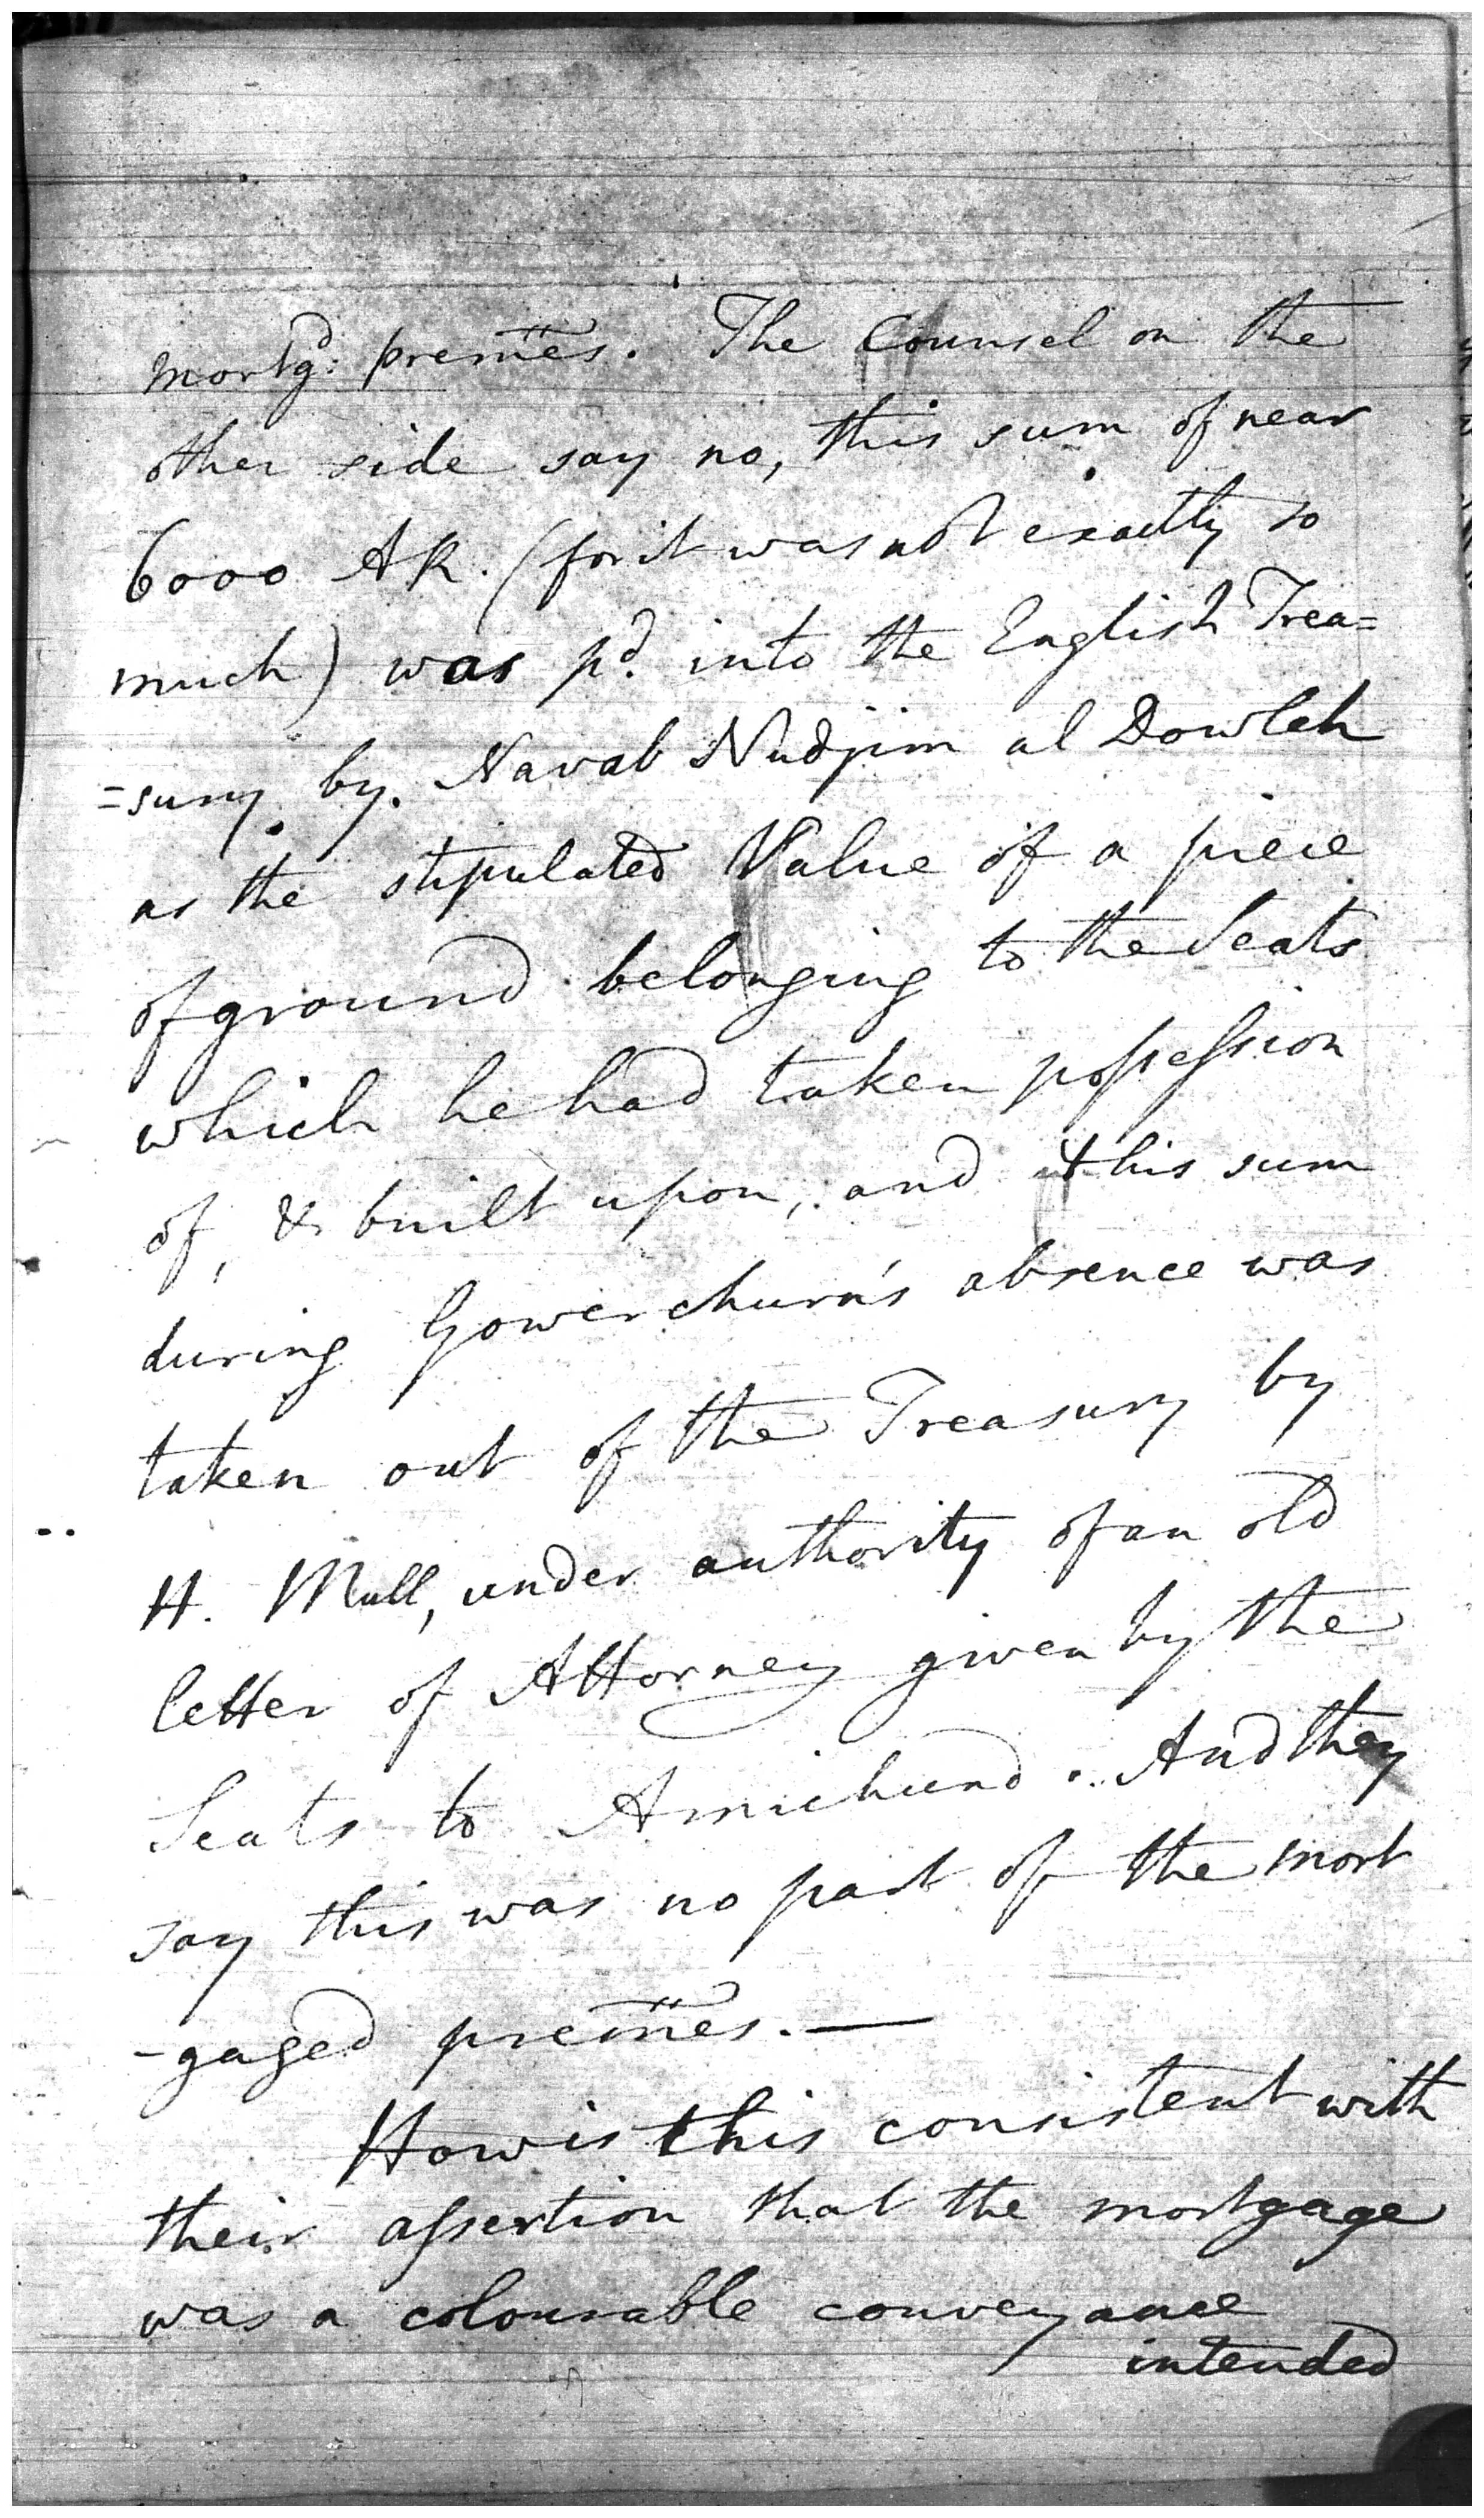 mortgd: premes. The Counsel on the
other side say no, this sum of near
6000 AR. (for it was not exactly so
much) was pd. into the English Trea=
=sury by. Navab Nudjim al Dowlah
as the stipulated Value of a piece
of ground belonging to the Seats
which he had taken possession
of, & built upon, and this sum
during Gowerchurn's absence was
taken out of the Treasury by
H. Mull, under authority of an old
letter of Attorney given by the
Seats to Amichund. And they
say this was no part of the mort
-gaged premes.—
How is this consistent with
their assertion that the mortgage
was a colourable conveyance
intended